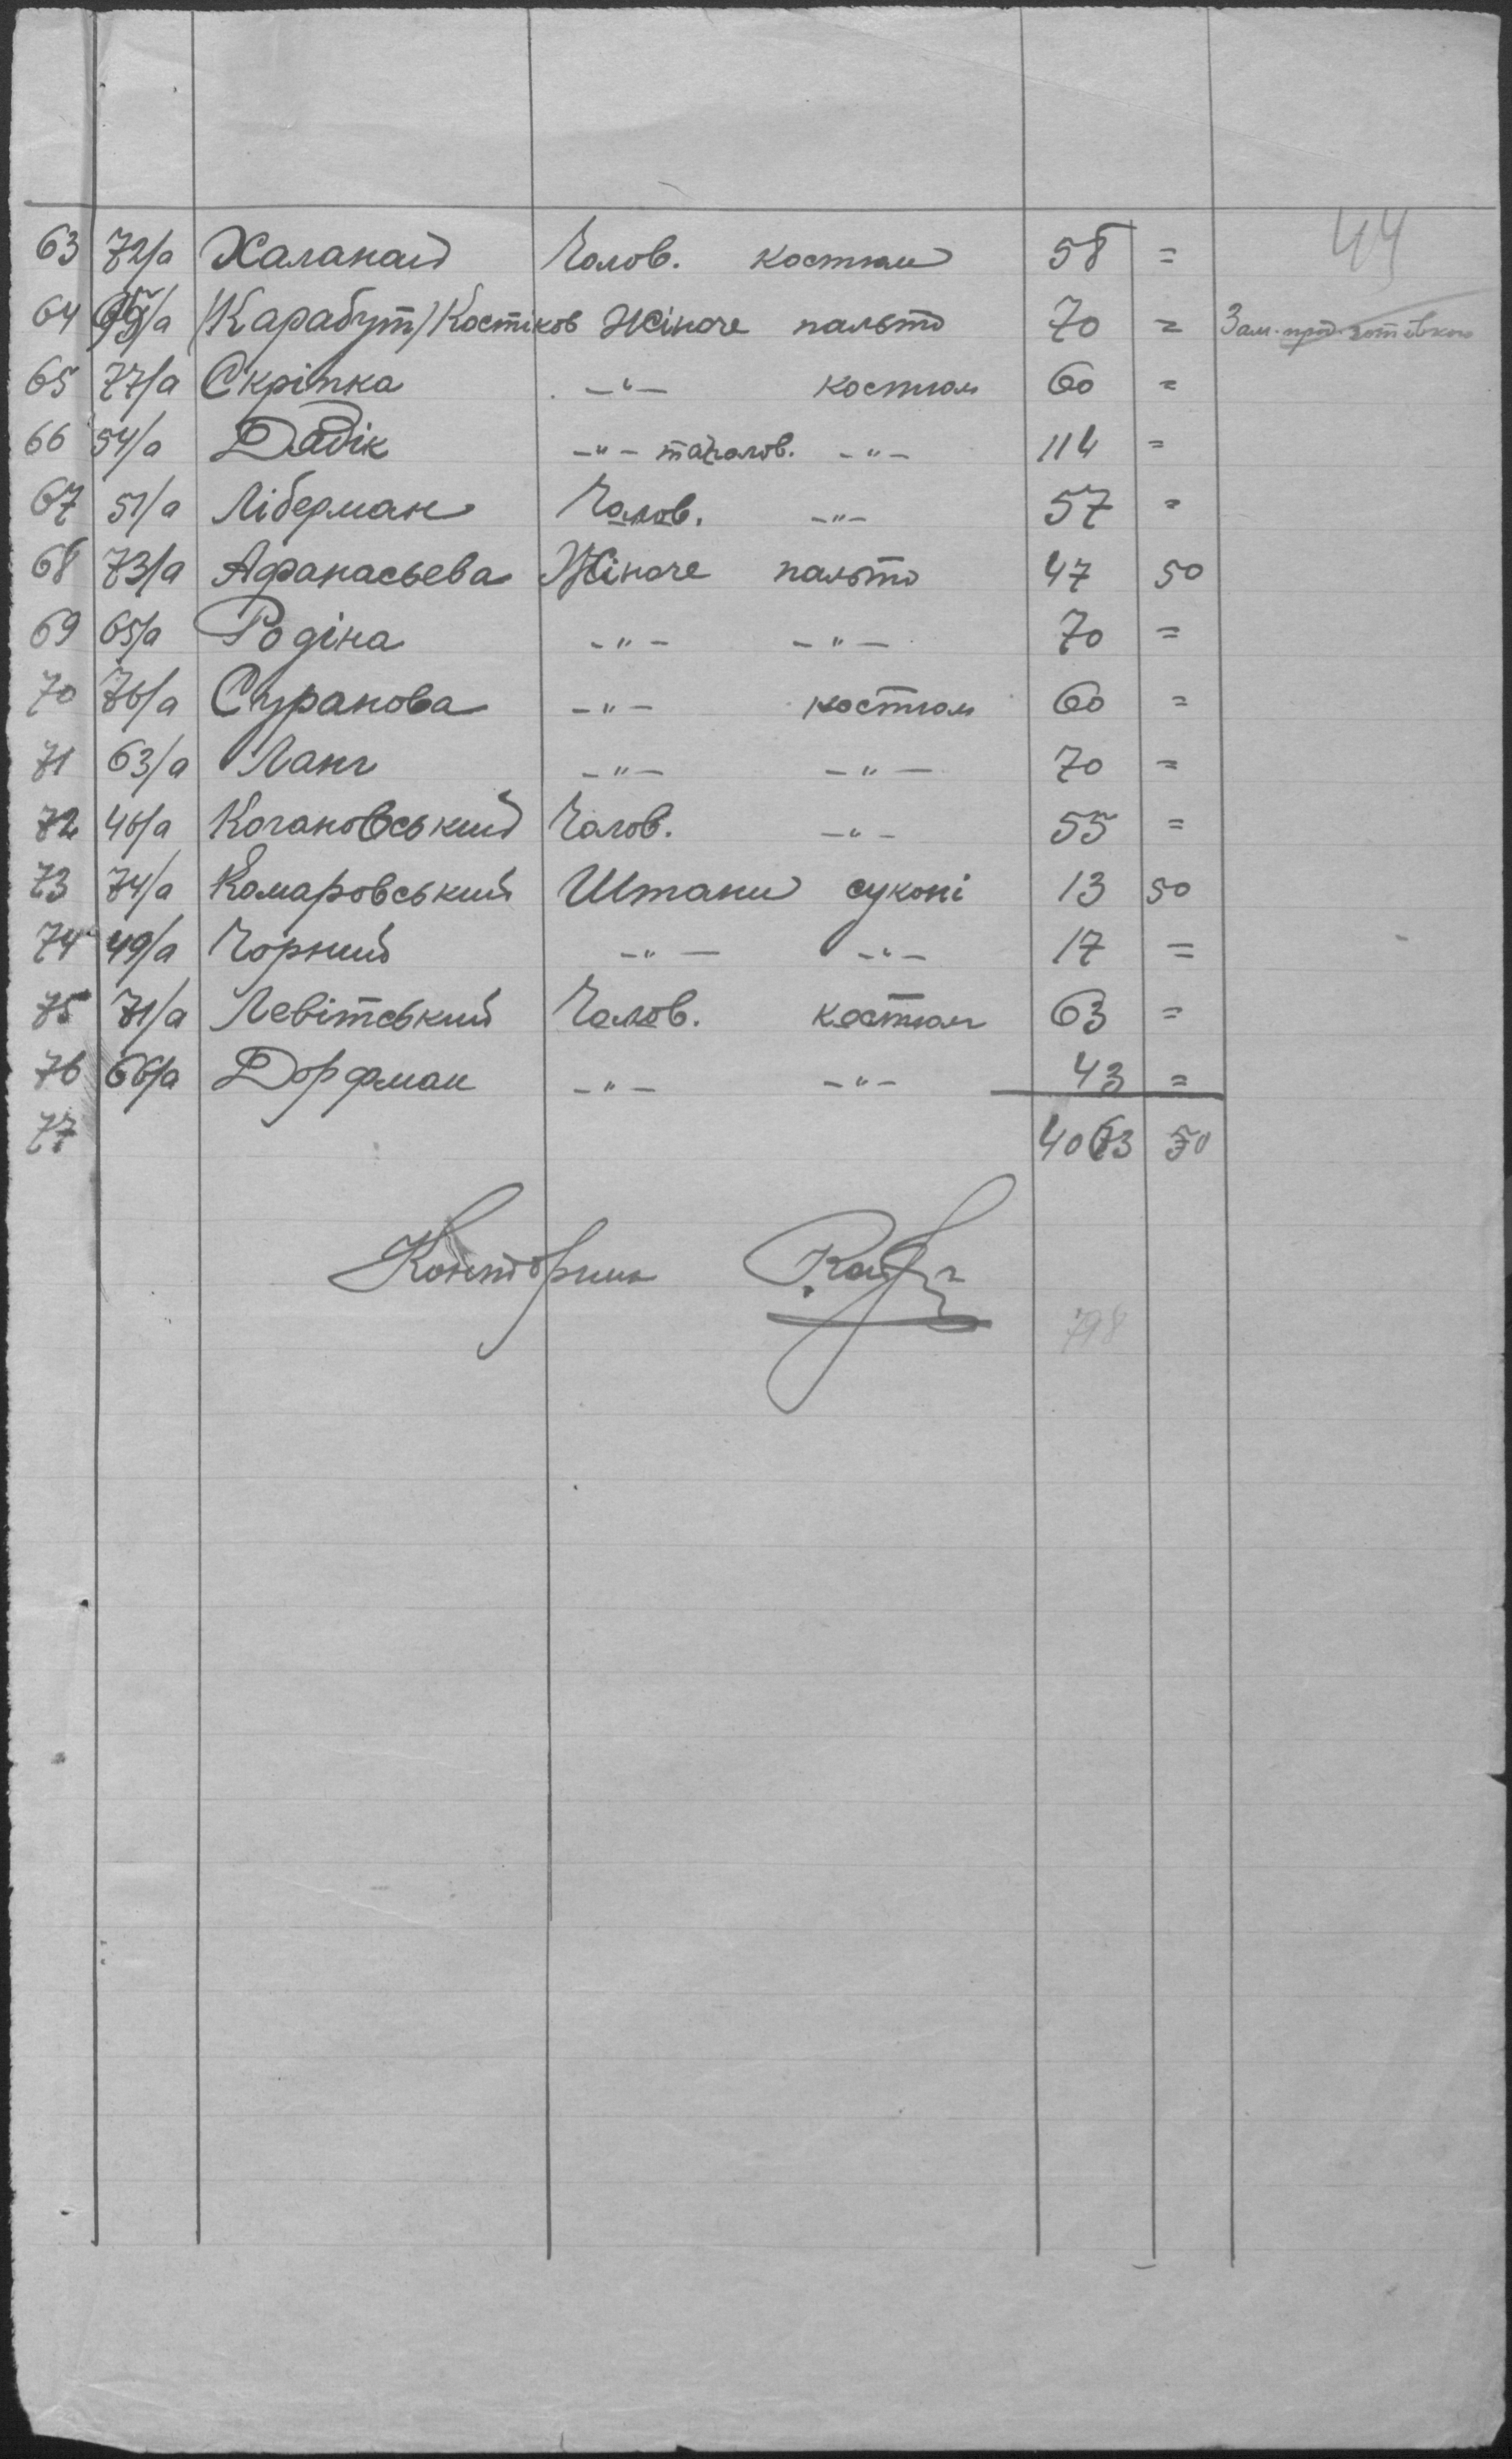 44
63 72/а Халанай Чолов. костюм 58 =
64 95/а (Карабут) Костіков Жіноче пальто 70 = Зам. прод. готівкою
65 77/а Скріпка -"- костюм 60 =
66 54/а Дадік -"- та чолов. -"- 114 =
67 51/а Ліберман Чолов. -"- 57 =
68 73/а Афанасьева Жіноче пальто 47 50
69 65/а Родіна -"- -"- 70 =
70 76/а Суранова -"- костюм 60 =
71 63/а Ланг -"- -"- 70 =
72 46/а Когановський Чолов. -"- 55 =
73 74/а Комаровський Штани суконі 13 50
74 49/а Чорний -"- -"- 17 =
75 71/а Левітський Чолов. костюм 63 =
76 66/а Дорфман -"- -"- 43 =
77 4063 50
Конторник
798